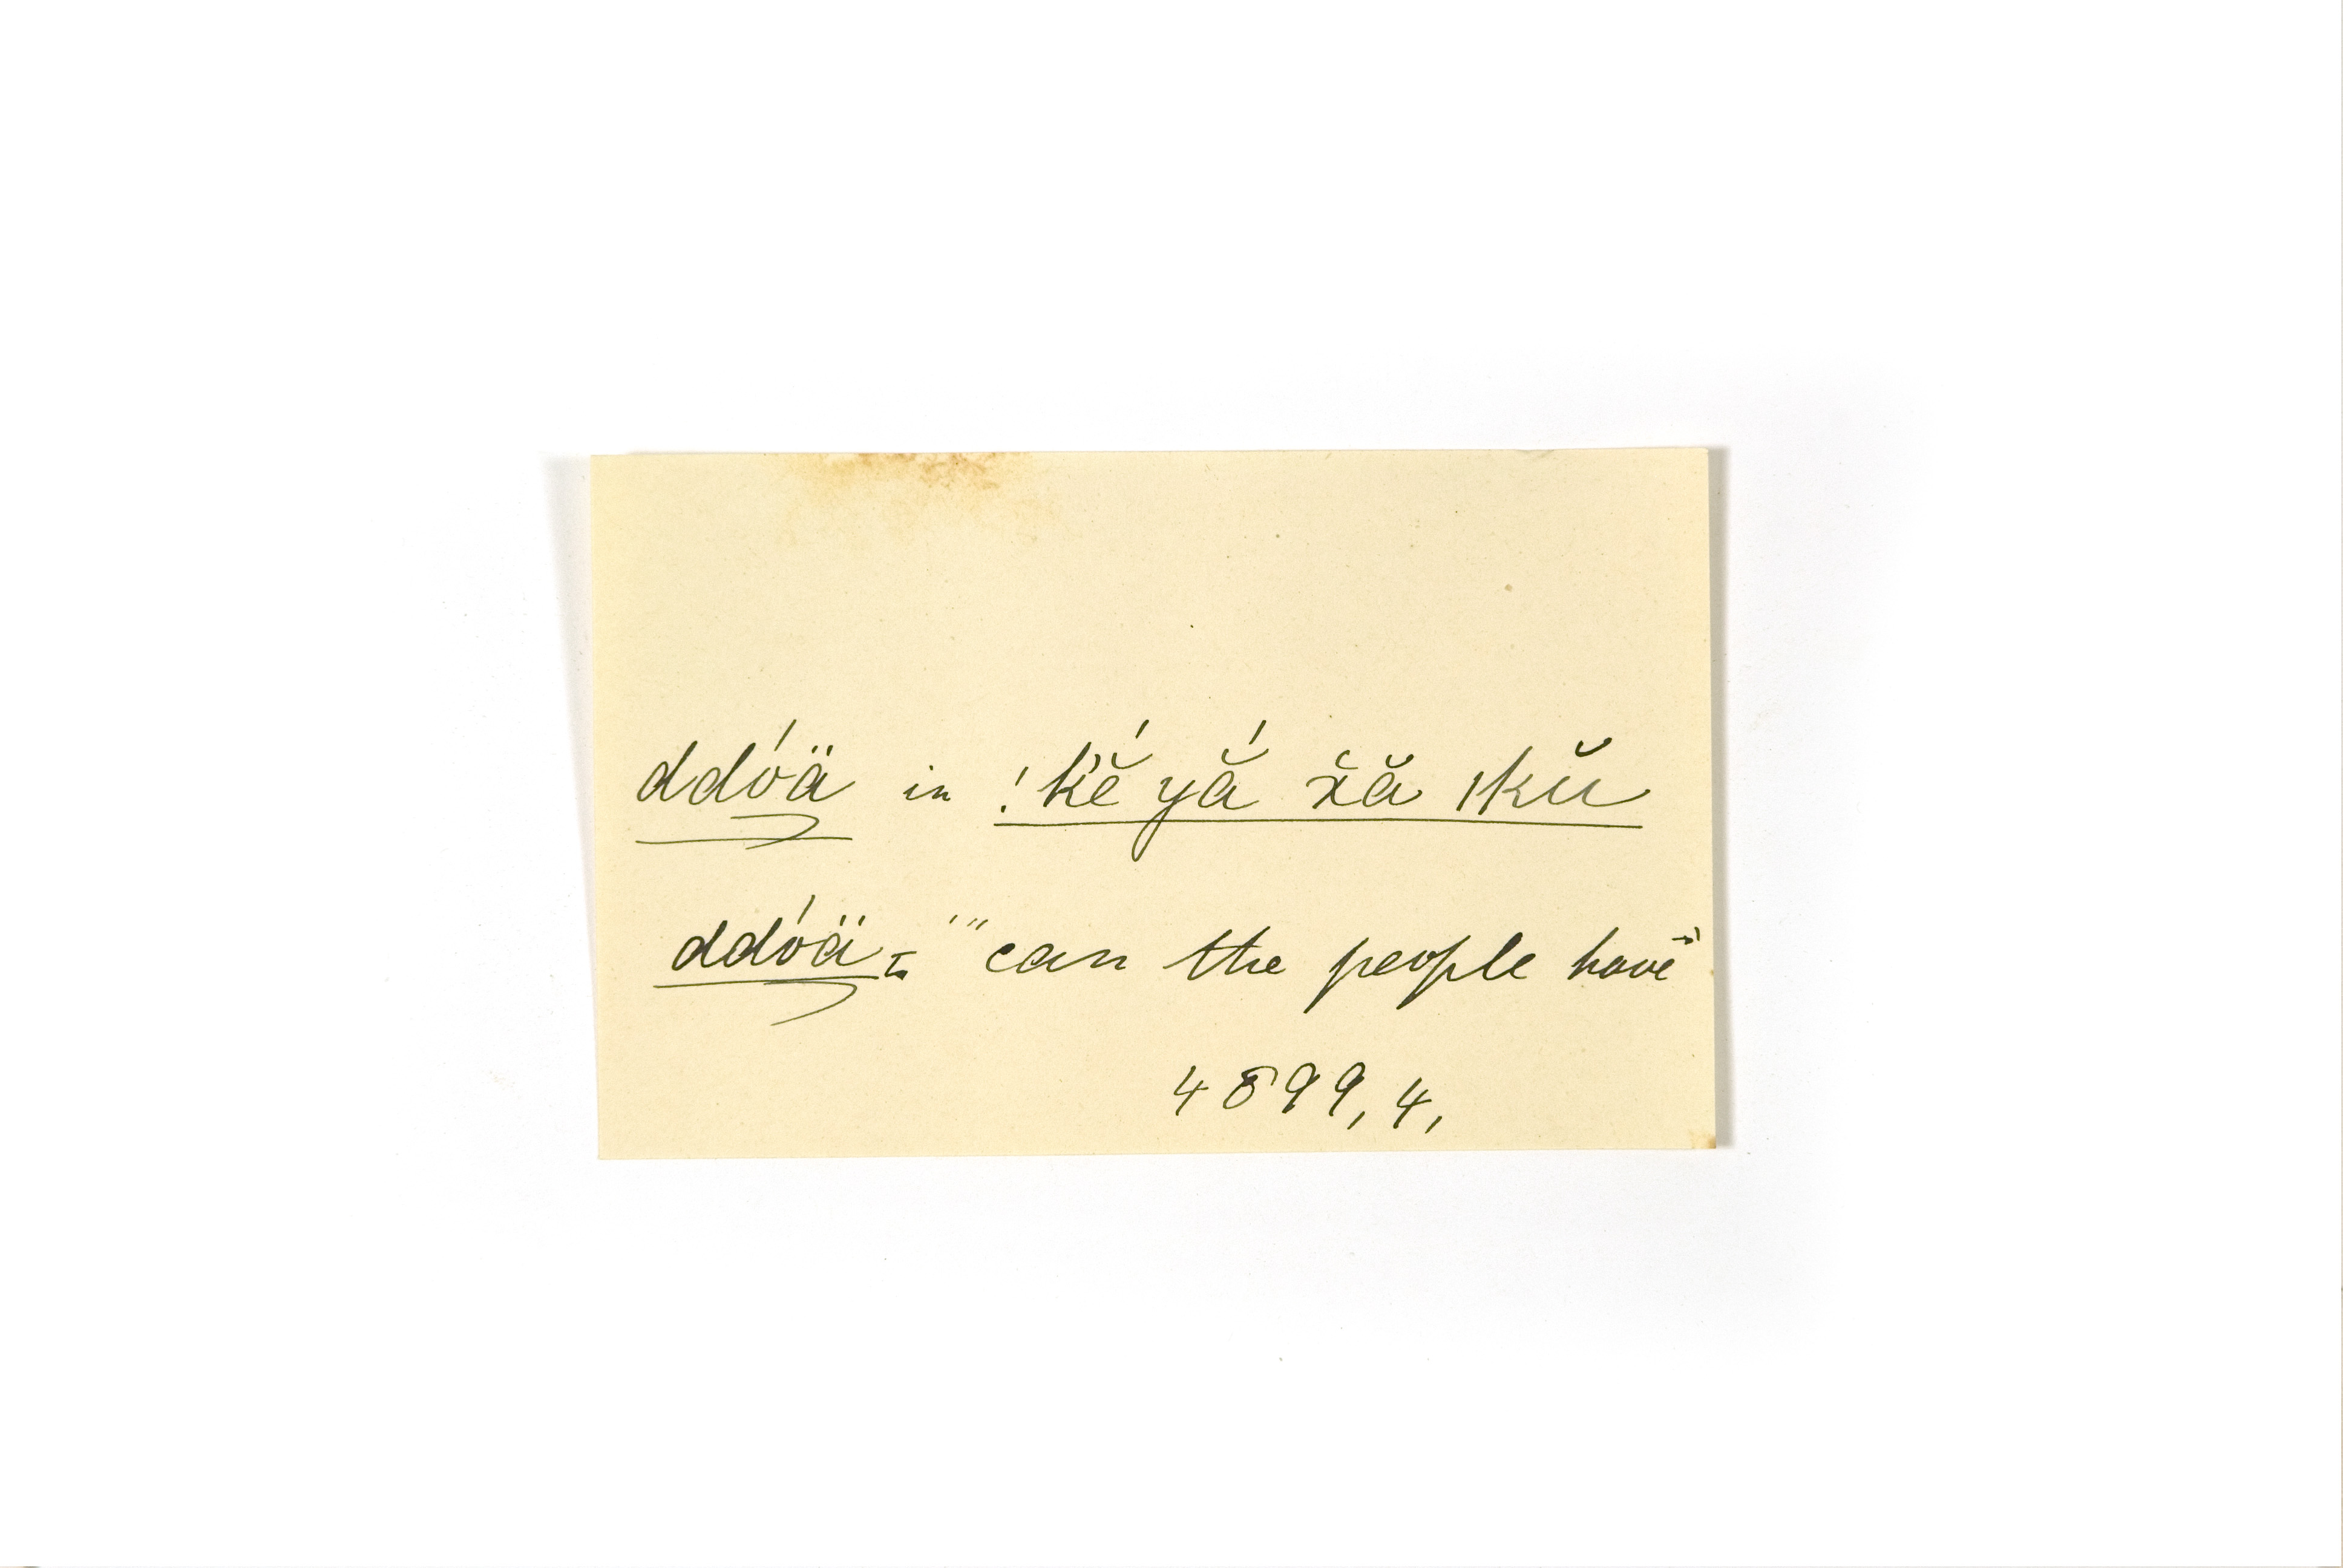 ddóä in !k̔ĕ́ yắ x̆ă ıkŭ
ddóä = '"can the people have"'
4899, 4,